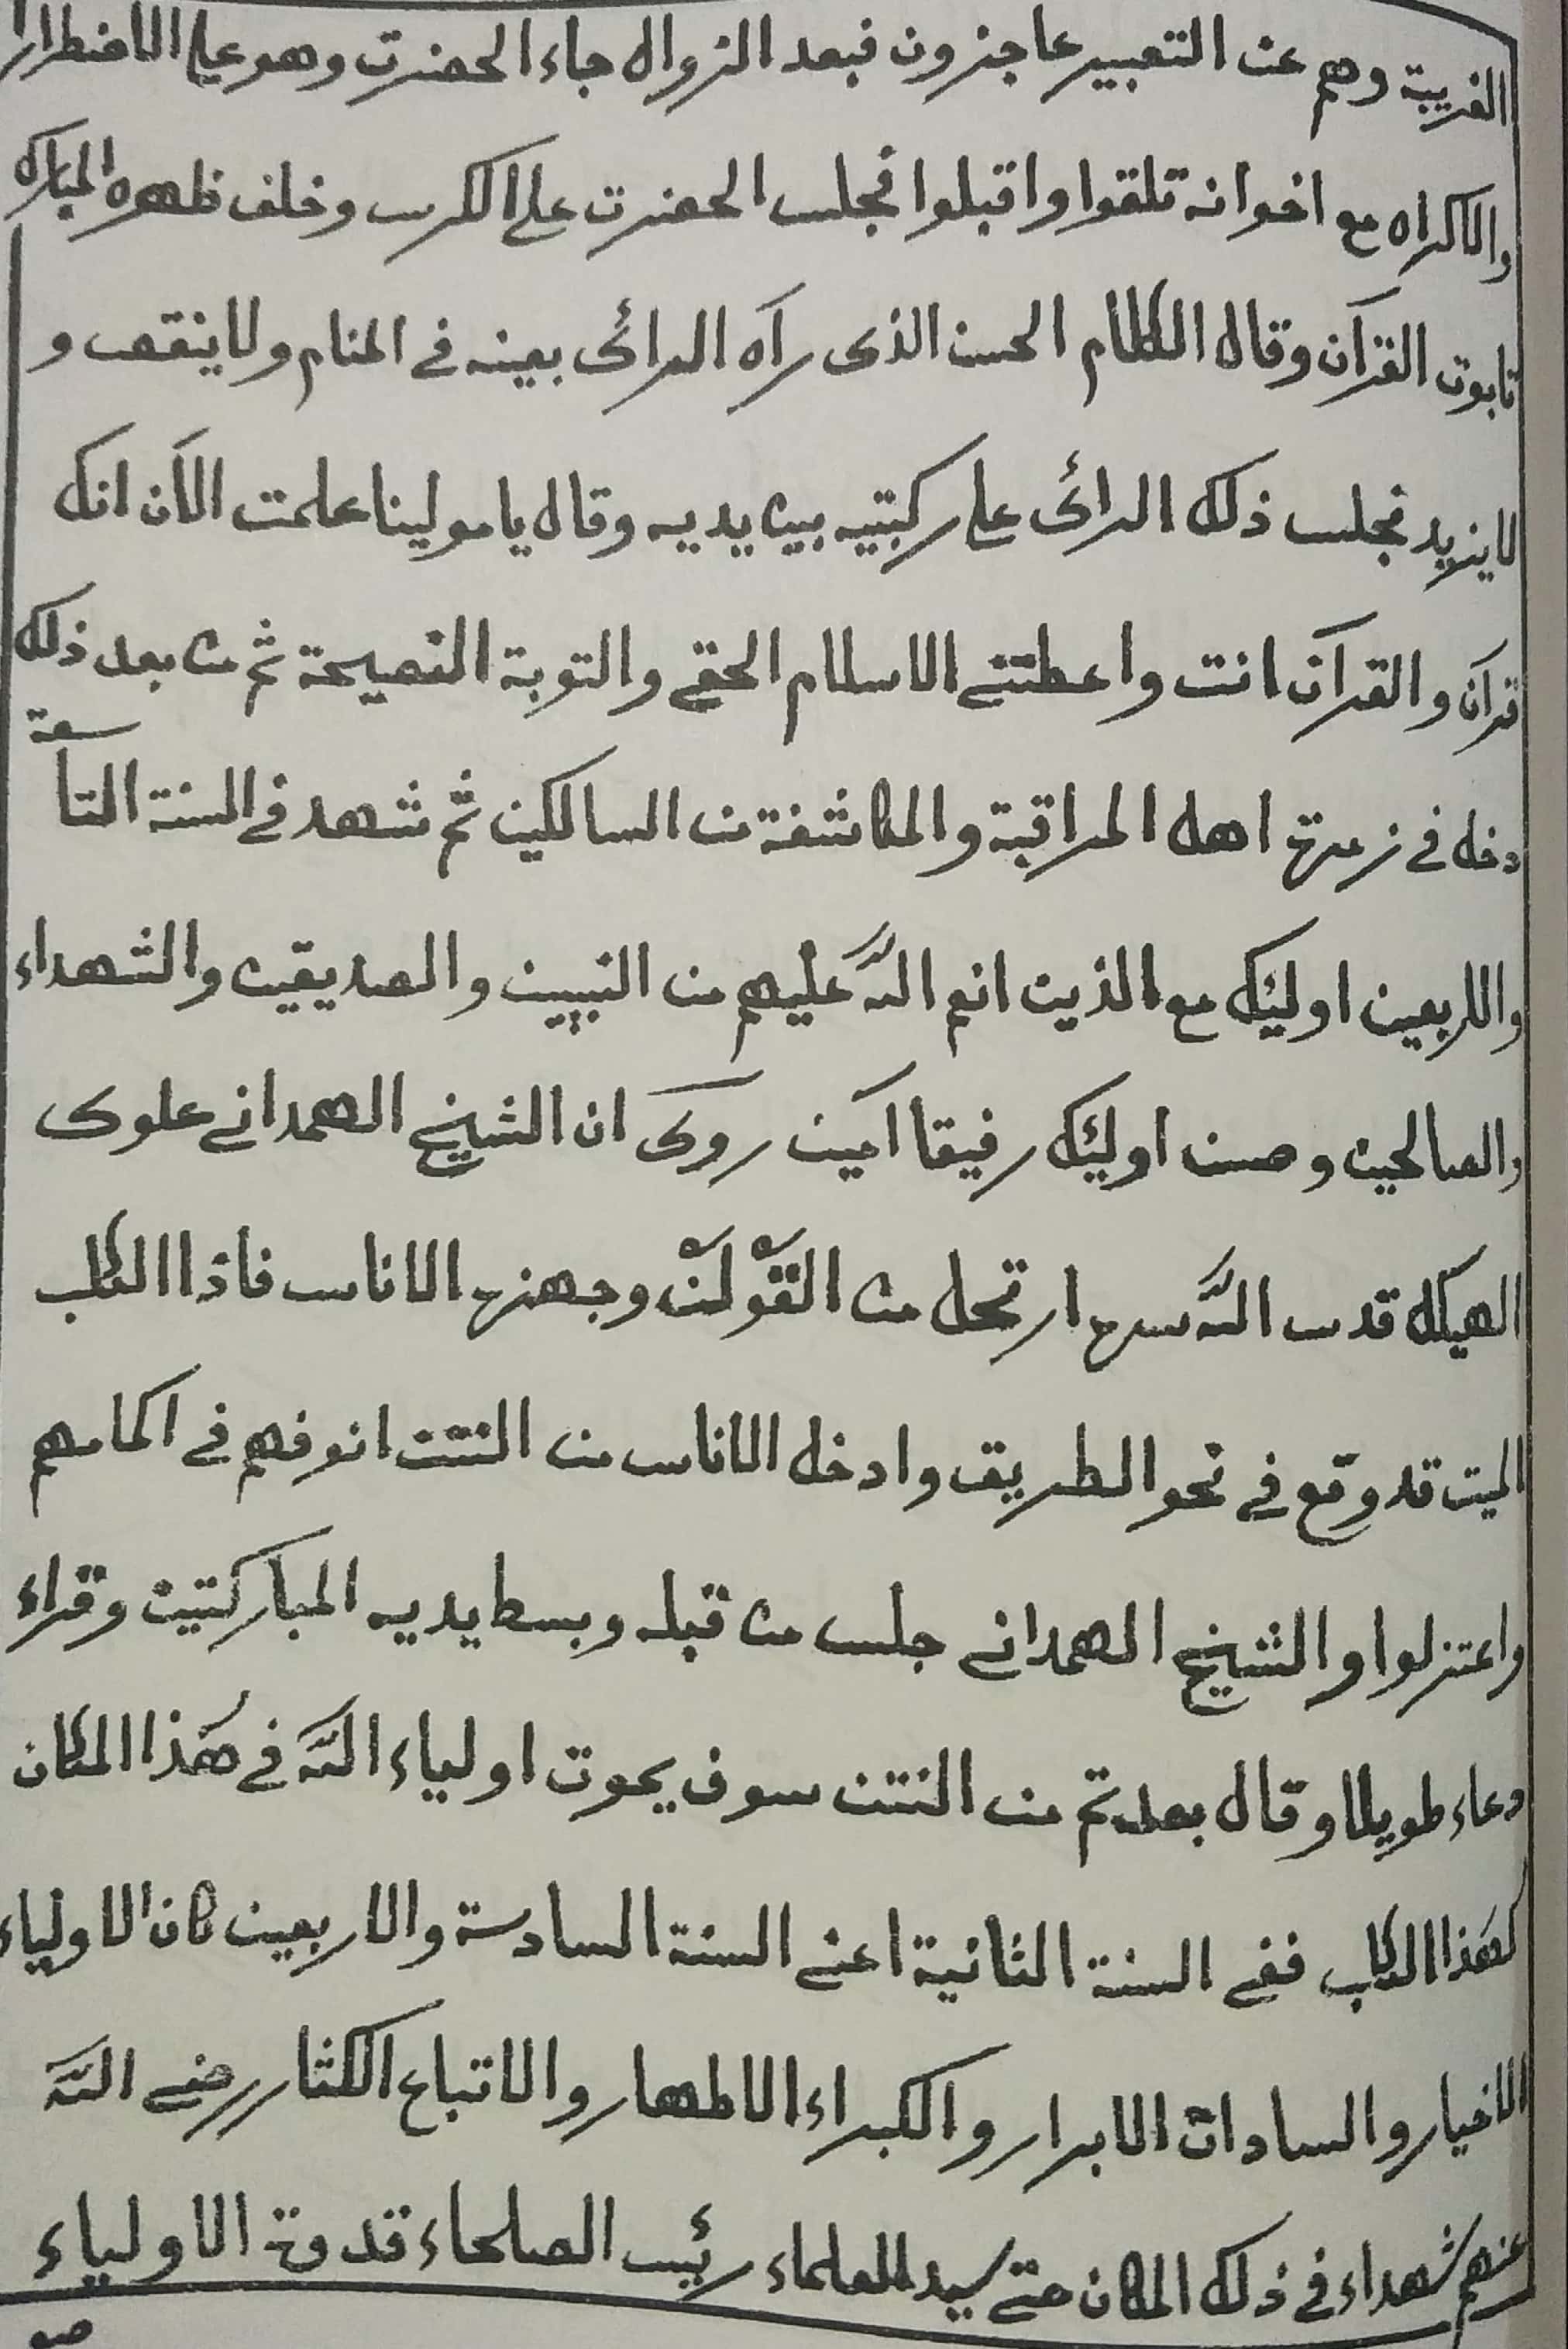 الغريبة وهم عن التعبير عاجزون فبعد الزوال جاء الحضرت وهو علي الاضطرار
والاكراه مع اخوانه تلقوا واقبلوا فجلس الحضرت علي الكرسي وخلف ظهره المبارك
تابوت القرآن وقال الكلام الحسن الذى رآه الرائى بعينه في المنام ولا ينقص و
لا يزيد فجلس ذلك الرائى علي ركبتيه بين يديه وقال يا مولينا علمت الآن انك
قرآن والقرآن انت واعطتني الاسلام الحقي والتوبة النصيحة ثم من بعد ذلك
دخل في زمرة اهل المراقبة والمكاشفة من السالكين ثم شهد في السنة التاسعة
والاربعين اوليئك مع الذين انعم الله عليهم من النبيين والصديقين والشهداء
والصالحين وحسن اوليئك رفيقا آمين روى ان الشيخ الهمداني علوى
الهيكل قدس الله سره ارتحل من القَوْلَنْ وجهزه الاناس فاذا الكلب
الميت قد وقع في نحو الطريق وادخل الاناس من النتن انوفهم في اكمامهم
واعتزلوا والشيخ الهمداني جلس من قبله وبسط يديه المباركتين وقراء
دعاء طويلا وقال بعدتم من النتن سوف يموت اولياء الله في هٰذا المكان
كهٰذا الكلب ففي السنة الثانية اعني السنة السادسة والاربعين كان الاولياء
الاخيار والسادات الابرار والكبراء الاطهار والاتباع الكثار رضي الله
عنهم شهداء في ذلك المكان حتي سيد العلماء رئيس الصلحاء قدوة الاولياء
صو